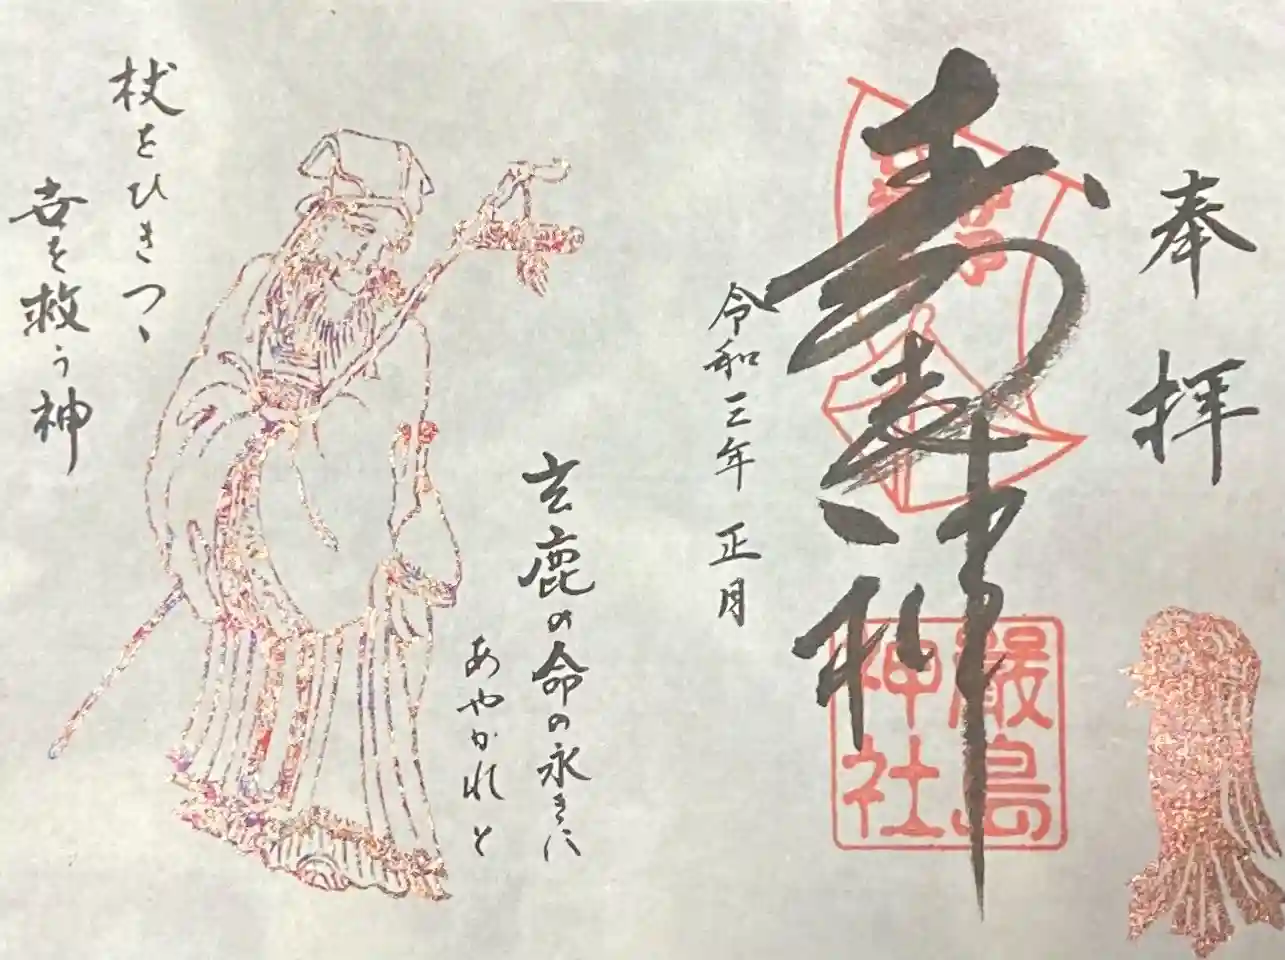 奉拝
寿老神
厳島
神社
令和三年 正月
玄鹿の命の永きに
あやかれと
杖をひきつゝ
吾を救う神